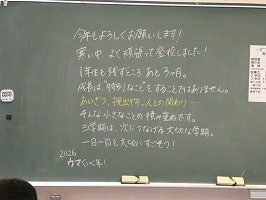 今年もよろしくお願いします!
寒い中、よく頑張って登校しました!
1年生も残すところ あと3ヶ月。
成長は、"特別なこと"をすることではありません。
あいさつ、提出物、人との関わり…
そんな小さなことの積み重ねです。
三学期は、次につなげる大切な学期。
一日一日を大切にすごそう!
2026
ウマくいく年!